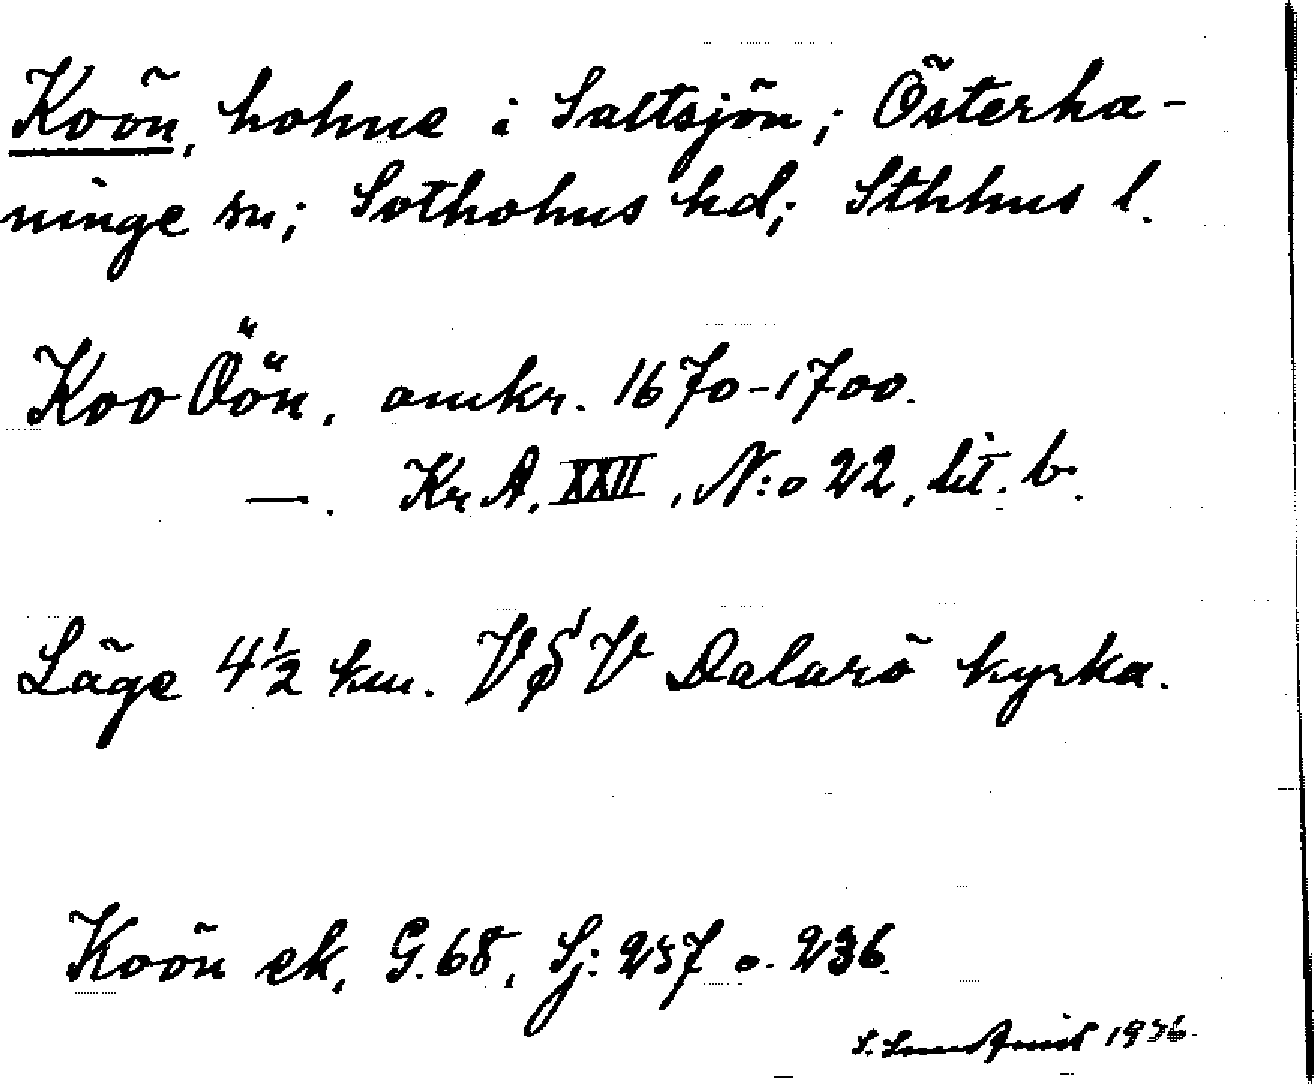 Koön, holme i Saltsjön; Österha-
ninge sn; Sotholms hd; Sthlms l.
Koo Öön, omkr. 1670-1700.
—. Kr A. XXII, N:o 22, lit. b.
Läge 4½ km. VSV Dalarö kyrka.
Koön ek, G. 68, Sj: 237 o. 236.
S. 1936.